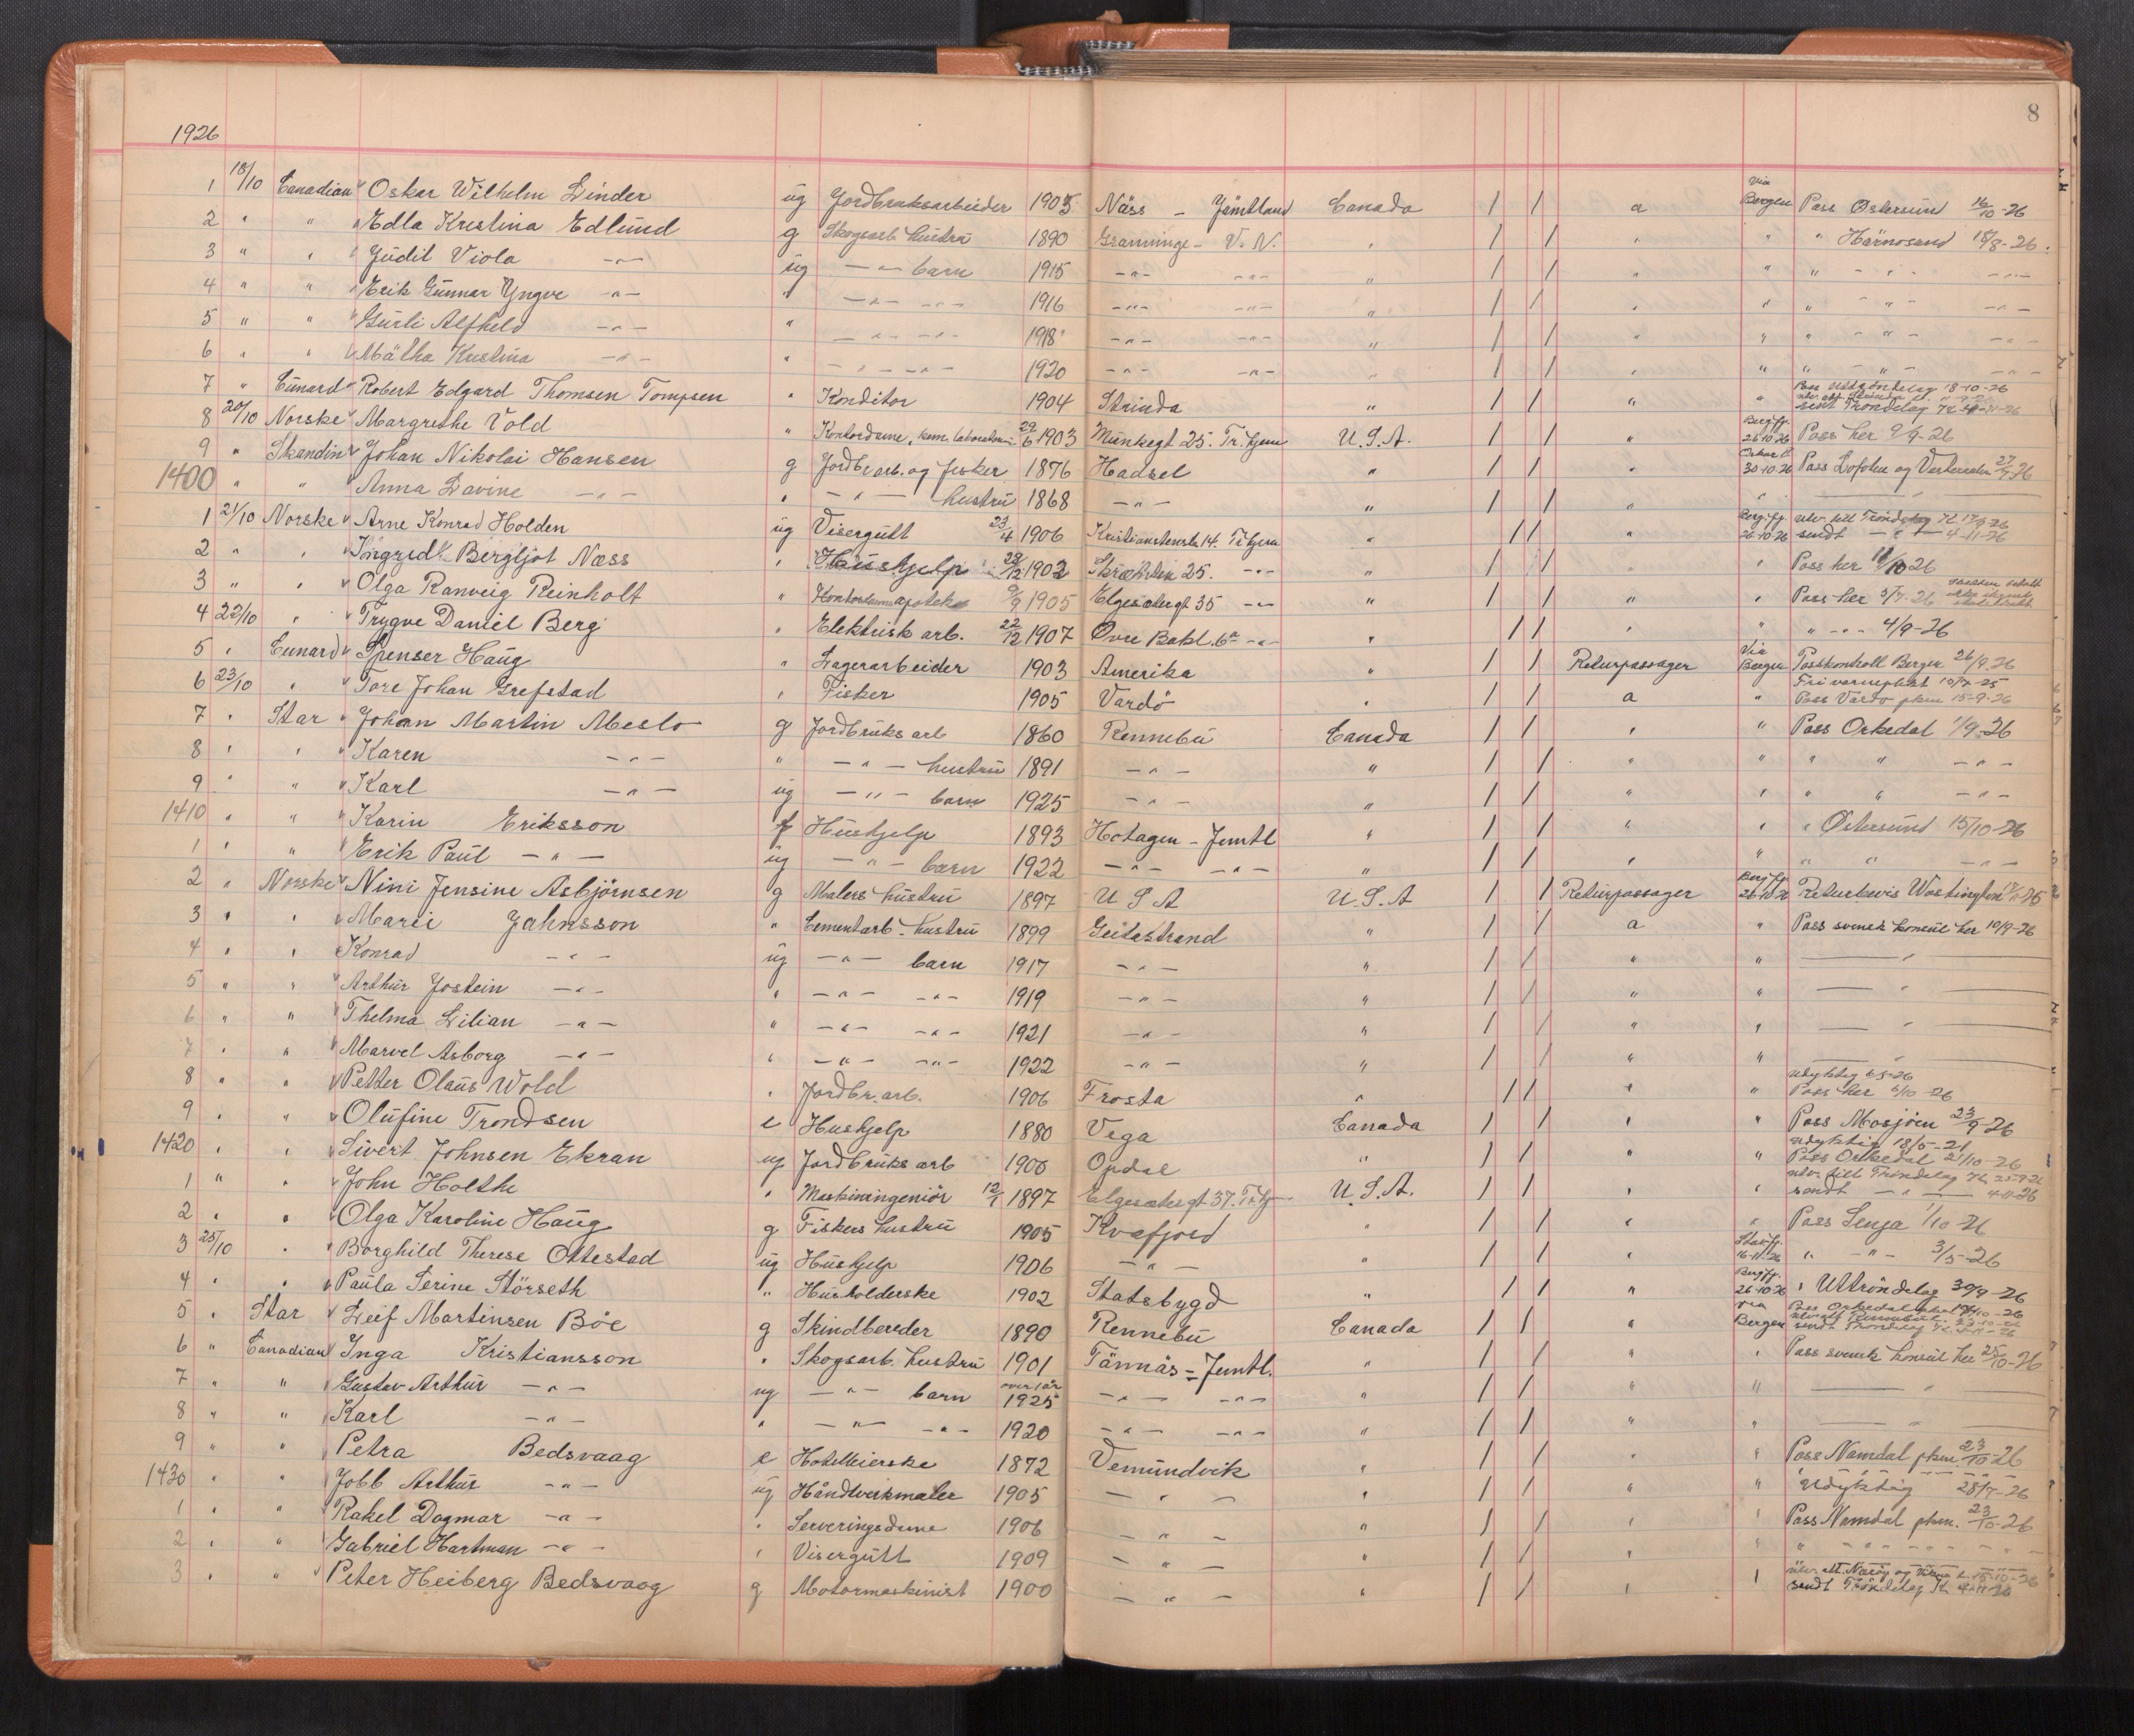 8
1926
1 18/10 Canadian Oskar Wilhelm Linder ug Jordbruksarbeider 1905 Näss - Jämtland Canada / / a via Bergen Pass Östersund 16/10-26
2 " " Edla Kristina Edlund g Skogsarb. hustru 1890 Graninge - V. N. " / / " " " Härnösand 18/8-26.
3 " " Judit Viola -"- ug -"- barn 1915 -"- -"- " / / " " " -"- -"-
4 " " Erik Gunnar Yngve -"- " -"- -"- 1916 -"- -"- " / / " " " -"- -"-
5 " " Gurli Alfhild -"- " -"- -"- 1918 -"- -"- " / / " " " -"- -"-
6 " " Mätha Kristina -"- " -"- -"- 1920 -"- -"- " / / " " " -"- -"-
7 " Cunard Robert Edgard Thomsen Tompsen " Konditor 1904 Strinda " / / " " Pass Uttröndelag 18-10-26
sendt Trondelag
8 20/10 Norske Margrethe Vold " Kontordame, kem. laboratorium 29/6 1903 Munkegt 25. Tr.hjem U.S.A. / / " Bergfj. 26-10-26 Pass her 9/9-26
9 " Skandin Johan Nikolai Hansen g Jordbr. arb. og fisker 1876 Hadsel " / / " Oskar II 30-10-26 Pass Lofoten og Vesteraalen 27/9-26
1400 " " Anna Lavine -"- " -"- hustru 1868 -"- " / / " " "
1 21/10 Norske Arne Konrad Holden ug Visergutt 23/4 1906 Kristianstensb. 14. Tr.hjem " / / " Bergfj. 26-10-26 utv. till Tröndelag
sendt -"- 4-11-26
2 " " Ingrid Bergljot Næss " Hushjelp 29/12 1902 25. -"- " / / " " Pass her 11/10 26
3 " " Olga Ranveig Reinholt " Kontordame apotek 9/9 1905 Elgesetergt 35 -"- " / / " " Pass her 3/7-26
4 22/10 " Trygve Daniel Berg " Elektrisk arb. 22/12 1907 Øvre Bakl. 6a -"- " / / " " " -"- 4/9-26
5 " Cunard Spenser Haug " Lagerarbeider 1903 Amerika " / / Returpassager Via Bergen Passkontroll Bergen 26/9 26
6 23/10 " Tore Johan Grefstad " Fisker 1905 Vardö " / / a " Fri vernepligt 10/7-25
Pass Vardö pkm 15-9-26
7 " Star Johan Martin Meslo g Jordbruks arb 1860 Rennebu Canada / / " " Pass Orkedal 1/9-26
8 " " Karen -"- " -"- hustru 1891 -"- " / / " " " " -"-
9 " " Karl -"- ug -"- barn 1925 -"- " / / " " " " -"-
1410 " " Karin Eriksson f Hushjelp 1893 Hotagen - Jemtl " / / " " " Östersund 15/10-26
1 " " Erik Paul -"- ug -"- barn 1922 -"- -"- " / / " " " " -"-
2 " Norske Nini Jensine Asbjörnsen g Malers hustru 1897 U S A U.S.A / / Returpassager Bergfj. 26-10-26 Returbevis Washington
3 " " Marie Jahnsson " Cementarb. hustru 1899 Geitastrand " / / a " Pass svensk konsul her 10/9-26
4 " " Konrad -"- ug -"- barn 1917 -"- " / / " " "
5 " " Arthur Jostein -"- " -"- -"- 1919 -"- " / / " " "
6 " " Thelma Lilian -"- " -"- -"- 1921 -"- " / / " " "
7 " " Marvel Asborg -"- " -"- -"- 1922 -"- " / / " " "
8 " " Petter Olaus Wold " Jordbr. arb. 1906 Frosta " / / " " Udyktig 6-5-26
Pass her 6/10-26
9 " " Olufine Trondsen e Hushjelp 1880 Vega Canada / / " " Pass Mosjöen 23/9-26
1420 " " Sivert Johnsen Ekran ug Jordbruks arb 1900 Opdal " / / " " Udyktig 18/5-21
Pass Orkedal 21/10-26
1 " " John Holthe " Maskiningeniör 12/1 1897 Elgesetergt 37. Tr.hj. U.S.A. / / " " utv. till Tröndelag
sendt -"- 4-11-26
2 " " Olga Karoline Haug g Fiskers hustru 1905 Kvæfjord " / / " " Pass Senja 1/10-26
3 25/10 " Borghild Therese Ottestad ug Hushjelp 1906 -"- " / / " Stavfj. 16-11-26 " -"- 3/5-26
4 " " Paula Serine Störseth " Husholderske 1902 Statsbygd " / / " Bergfj. 26-10-26 " Uttröndelag 30/9-26
5 " Star Leif Martinsen Böe g Skindbereder 1890 Rennebu Canada / / " via Bergen Pass Orkedal
sendt Tröndelag
6 " Canadian Inga Kristiansson " Skogsarb. hustru 1901 Tännäs - Jemtl. " / / " " Pass svensk konsul her 25/10-26
7 " " Gustav Arthur -"- ug -"- barn over 1 år 1925 -"- -"- " / / " " "
8 " " Karl -"- " -"- -"- 1920 -"- -"- " / / " " "
9 " " Petra Bedsvaag e Hotelleierske 1872 Vemundvik " / / " " Pass Namdal pkm. 23/10-26
1430 " " Jobb Arthur -"- ug Håndverkmaler 1905 -"- " / / " " Udyktig 28/7-26
1 " " Rakel Dagmar -"- " Serveringsdame 1906 -"- " / / " " Pass Namdal pkm. 23/10-26
2 " " Gabriel Hartman -"- " Visergutt 1909 -"- " / / " " " -"- -"-
3 " " Peter Heiberg Bedsvaag g Motormaskinist 1900 -"- " / / " " utv. att. Næröy og Vikna
sendt Tröndelag 4-11-26